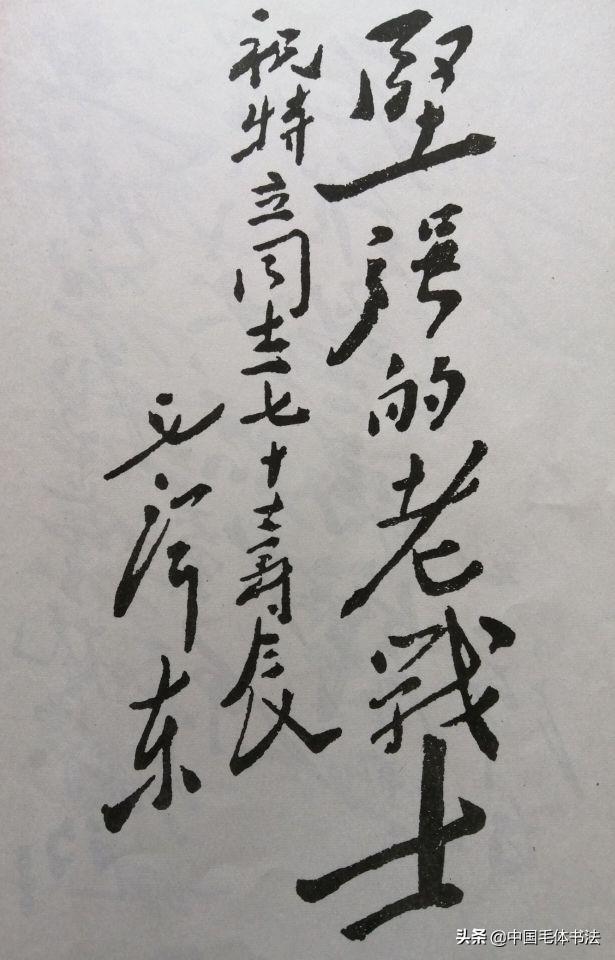 堅强的老戰士
祝特立同志七十大寿辰
毛泽东
头条 @中国毛体书法